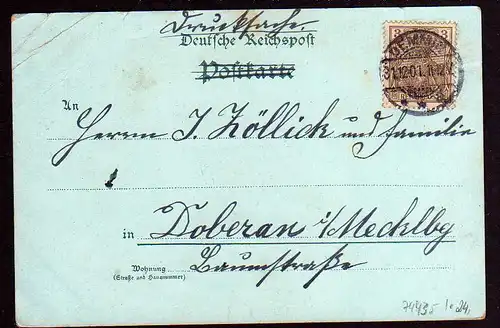 Drucksache
Deutsche Reichspost
Postkarte
3
31.12.01.
An
Herrn J. Zöllick und Familie
in Doberan i/Mecklbg
Wohnung Baumstraße
(Straße und Hausnummer)
74435 1024,